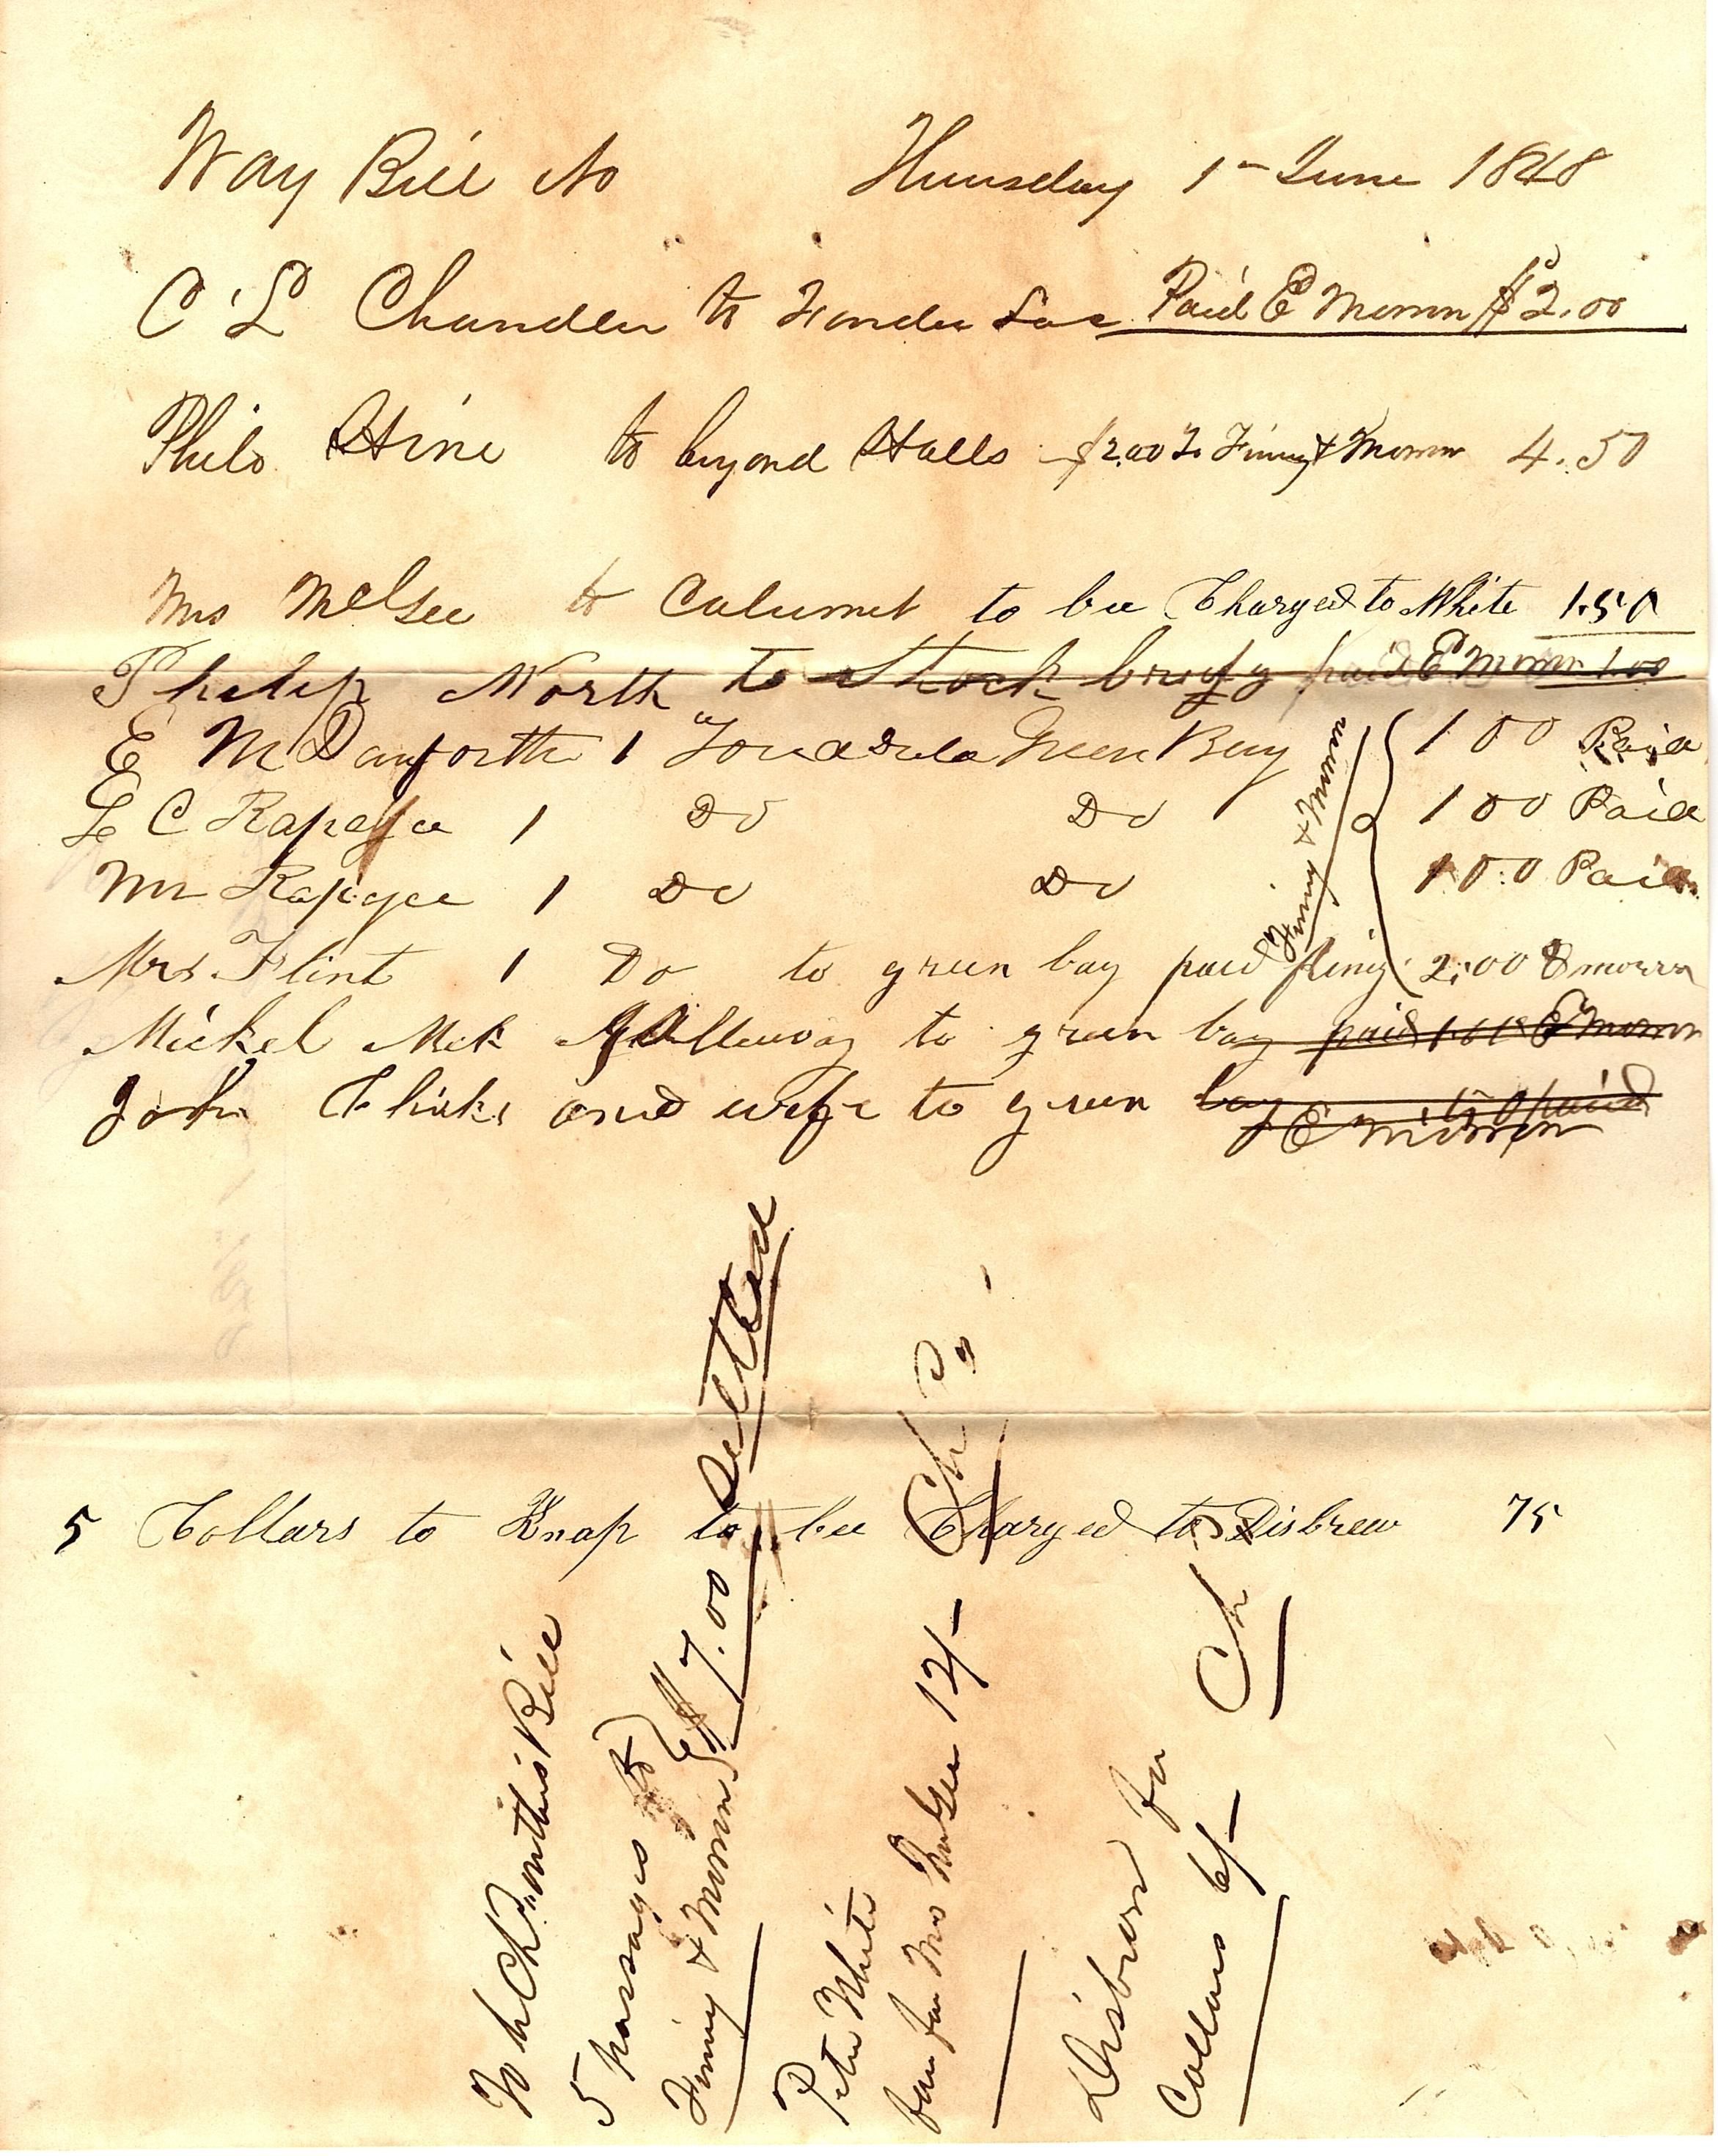 Way Bill No Thursday 1 - June 1848
C L Chandler to Fondu Lac Paid E Morrow $2.00
Philo Hine to beyond Halls $2.00 To Finny & Morrow 4.50
Mrs McGee to Calumet to be Charged to White 1.50
Philip North to Stock brigg paid E Morrow 1.00
E M Danforth 1 " Green Bay 1 00 Paid
C Rapelyee 1 Do Do 1 00 Paid
Mr Rapelyee 1 Do Do 1 00 Paid
Finny & Morrow
Mrs Flint 1 Do to green bay paid finy 2.00 & morrow
Mickel Mck to green bay paid E Morrow
John and wife to green bay paid
E Morrow
5 Collars to Knap to be Charged to Disbrew 75
To be Chd on this Bill
5 passages to
Finny & Morrow $7.00 Settled
Peter White
fare for Mrs McGee 12/- Chd
Disbrow for
Collars 6/- Ch